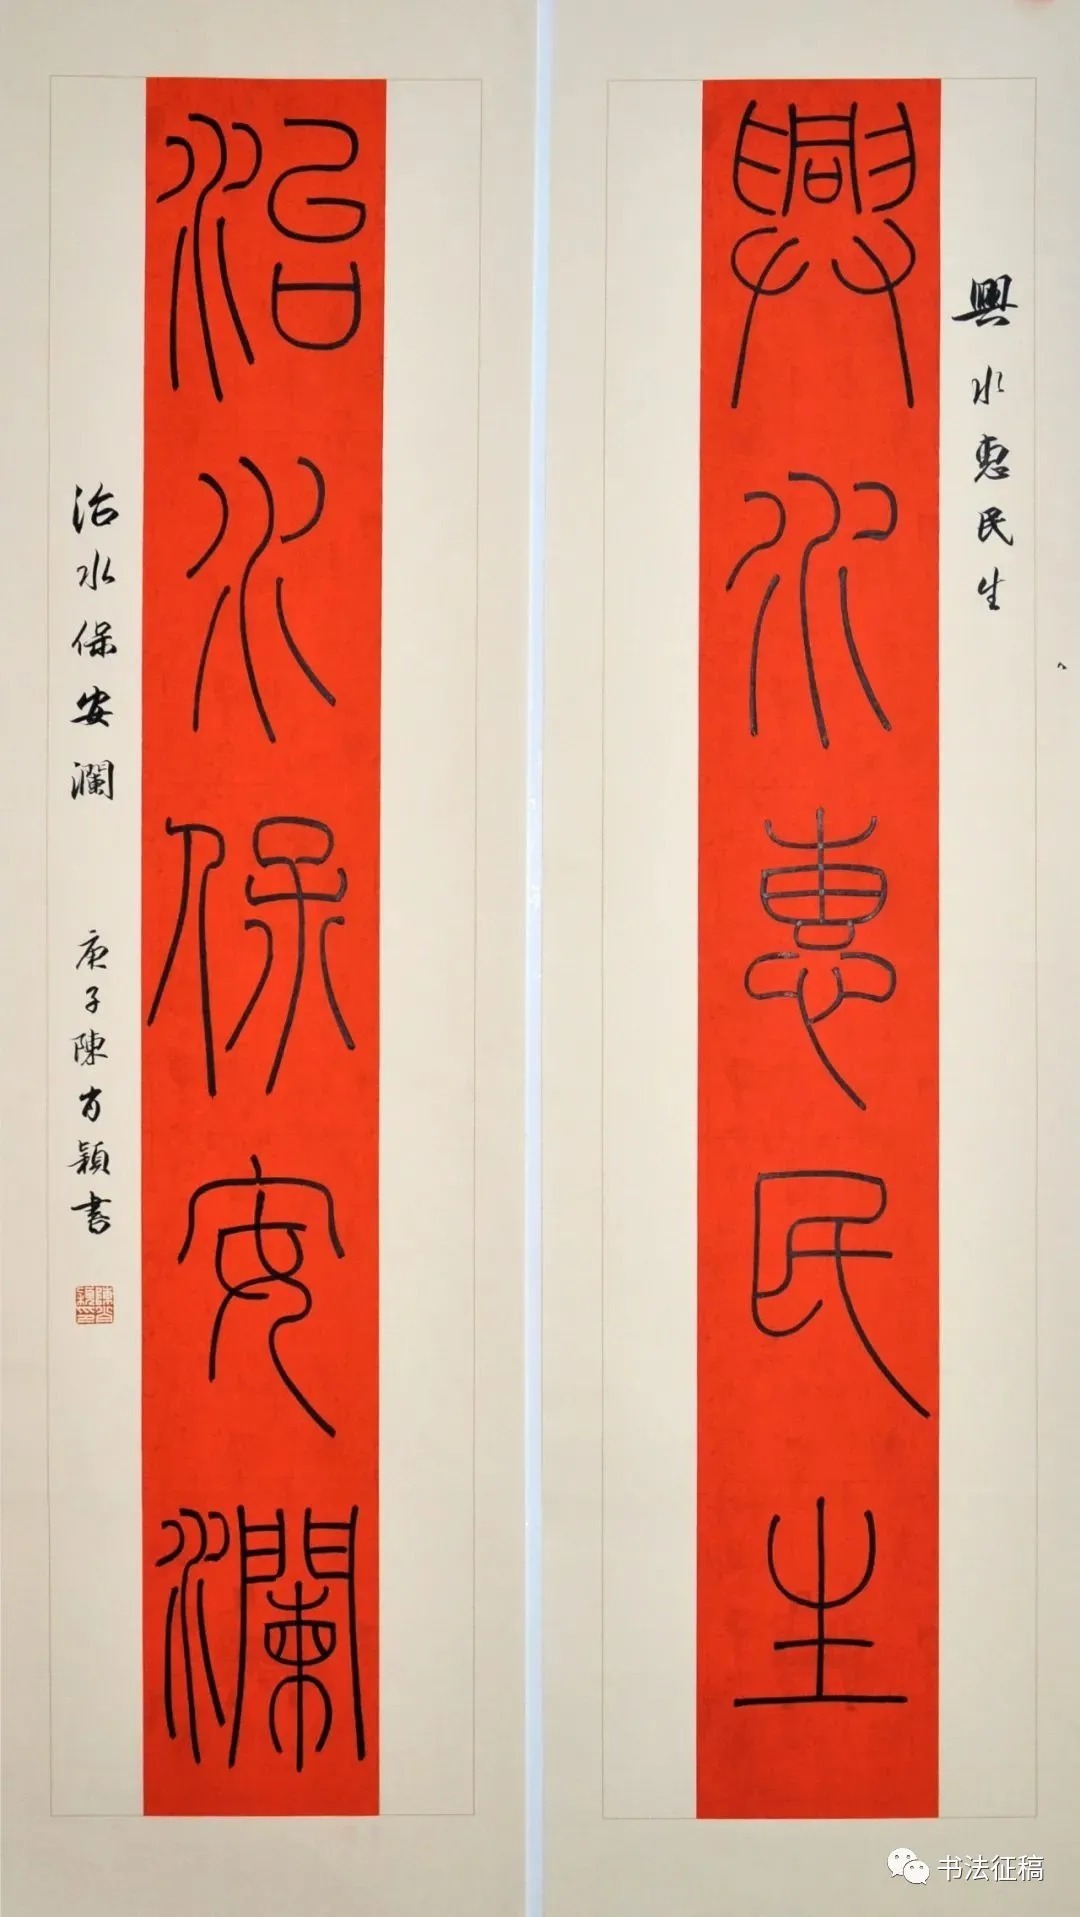 興水惠民生
興水惠民生
治水保安瀾
治水保安瀾
庚子陳肖穎書
书法征稿